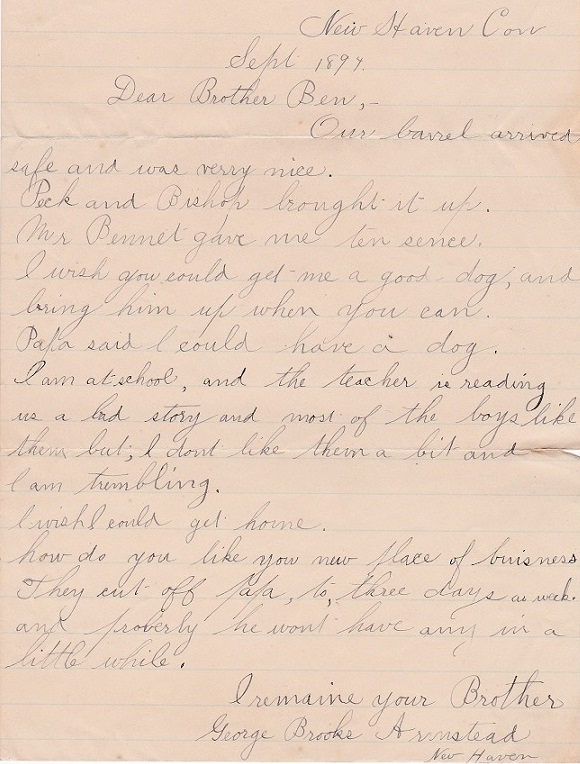 New Haven Con
Sept 1897.
Dear Brother Ben,-
Our barrel arrived
safe and was verry nice.
Peck and Bishop brought it up.
Mr Bennet gave me ten sence.
I wish you could get me a good dog, and
bring him up when you can.
Papa said I could have a dog.
I am at school, and the teacher is reading
us a bad story and most of the boys like
them but; I dont like them a bit and
I am trembling.
I wish I could get home.
how do you like you new place of buisness
They cut off papa, to, three days a week.
and proverly he wont have any in a
little while.
I remaine your Brother
George Brooks Armstead
New Haven